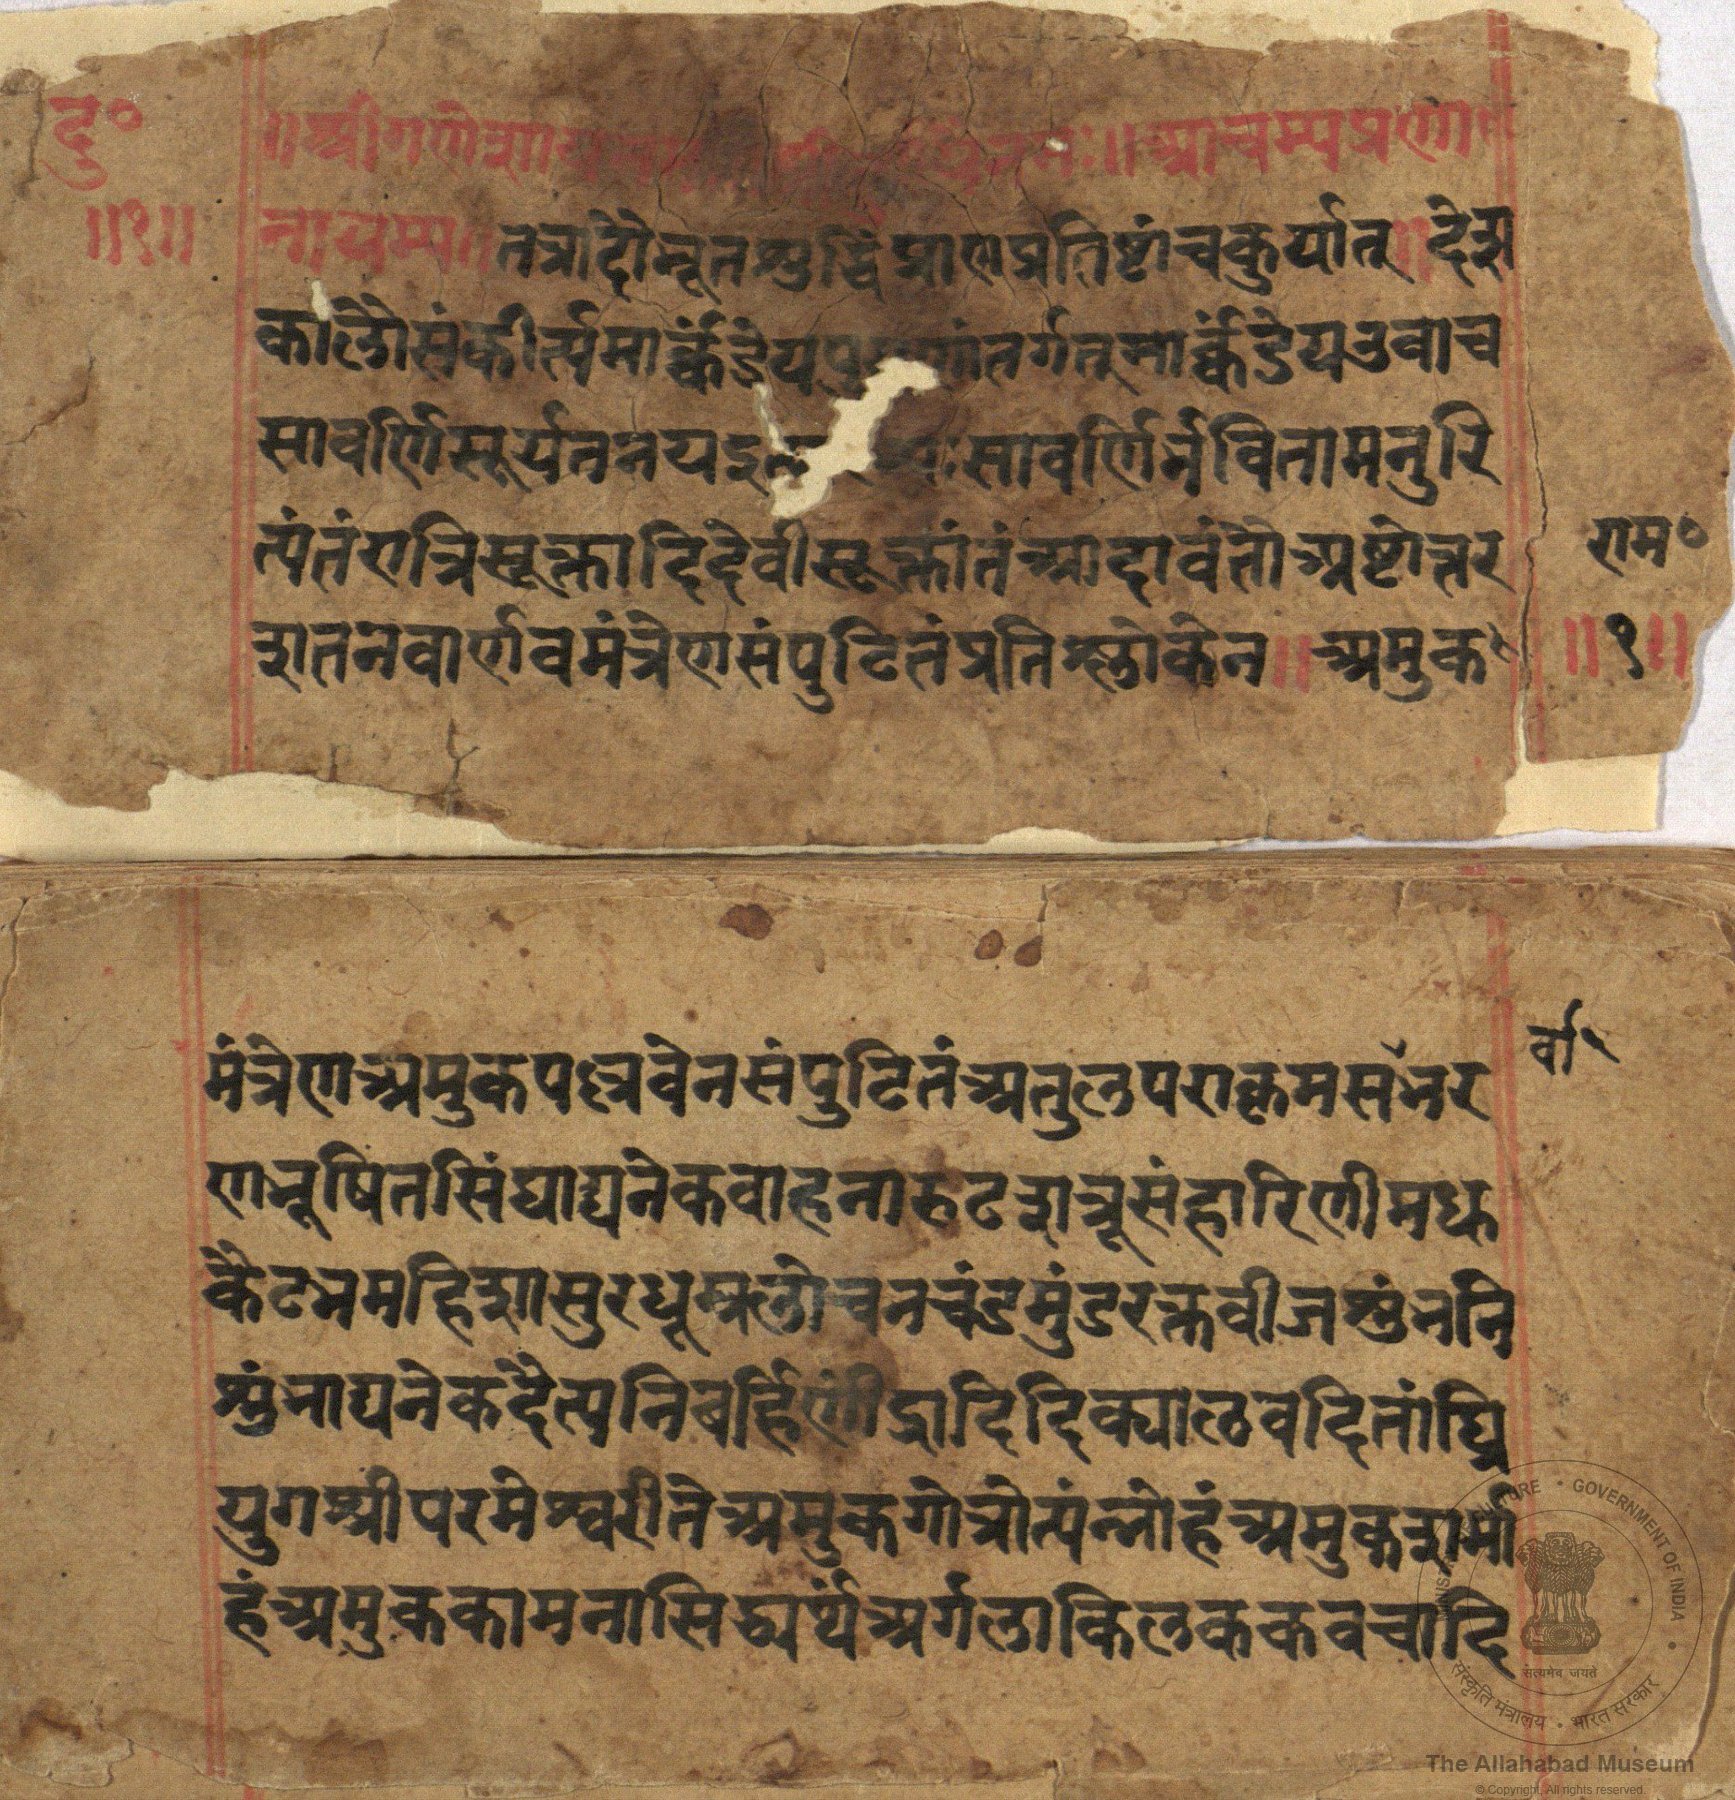 दु०
॥श्रीगणेशाय नमः॥आचम्यप्राणा
॥१॥
नायम्य॥तत्रादौभूतशुद्धिंप्राणप्रतिष्टांचकुर्यात्॥देश
कालौसंकीर्त्यमार्कंडेय तर्गतमार्कंडेयउवाच
सावर्णिसूर्यतनय सावर्णिर्भवितामनुरि
त्यंतंरात्रिसूक्तादिदेवीसूक्तांतंआद्यावंतौअष्टोत्तर
राम०
शतनवार्णवमंत्रेणसंपुटितंप्रतिश्लोकेन॥अमुक
॥१॥
मंत्रेणअमुकपल्लवेनसंपुटितंअतुलपराक्रमसभर
र्वा
णभूषितसिंघाद्यनेकवाहनारुटशत्रूसंहारिणीमधु
कैटभमहिशासुरधूम्रलोचनचंडमुंडरक्तवीजशुंभनि
शुंभाद्यनेकदैत्यनिबर्हिणींद्रादिदिक्पालवदितांघ्रि
युगश्रीपरमेश्वरीतेअमुकगोत्रोत्पंन्नोहंअमुकशर्मा
हंअमुककामनासिद्ध्यर्थंअर्गलाकिलककवचादि
MINISTRY OF CULTURE • GOVERNMENT OF INDIA
सत्यमेव जयते
संस्कृति मंत्रालय • भारत सरकार
The Allahabad Museum
© Copyright, All rights reserved.